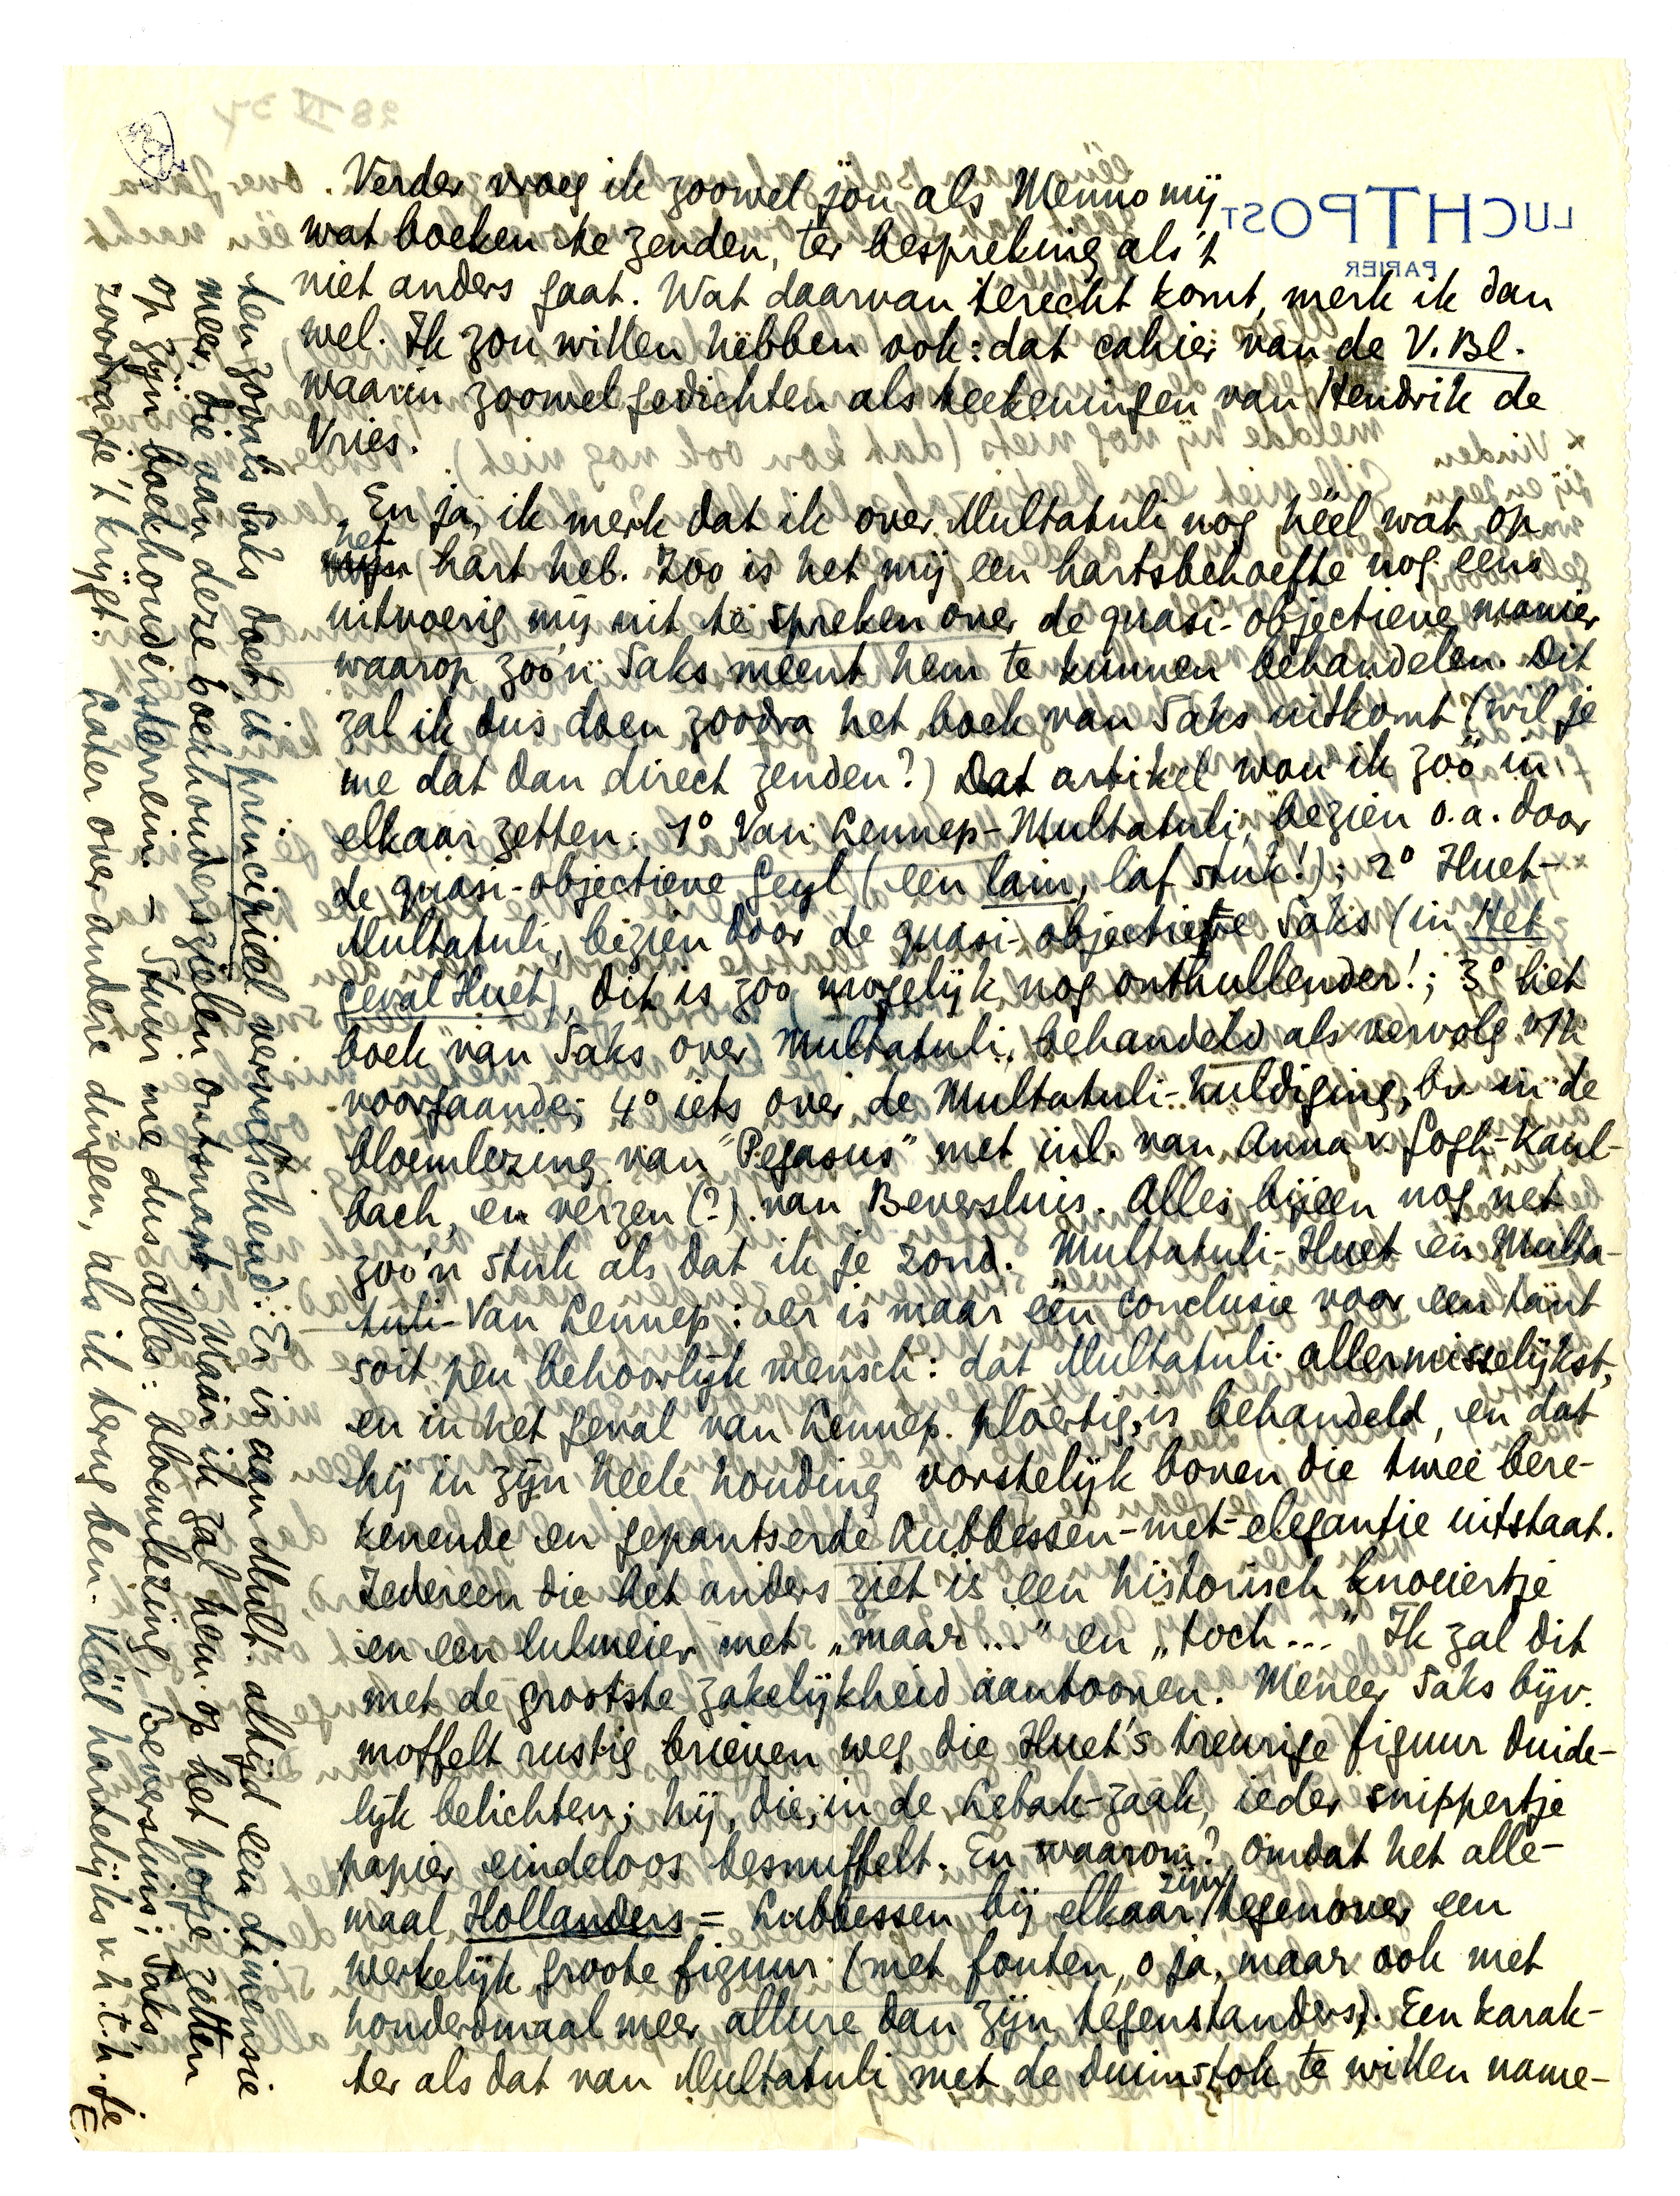 Verder vroeg ik zoowel jou als Menno mij
wat boeken te zenden, ter bespreking als 't
niet anders gaat. Wat daarvan terecht komt, merk ik dan
wel. Ik zou willen hebben ook: dat cahier van de V. Bl.
waarin zoowel gedichten als teekeningen van Hendrik de
Vries.
En ja, ik merk dat ik over Multatuli nog héél wat op
het hart heb. Zoo is het mij een hartsbehoefte nog eens
uitvoerig mij uit te spreken over de quasi-objectieve manier
waarop zoo'n Saks meent hem te kunnen behandelen. Dit
zal ik dus doen zoodra het boek van Saks uitkomt (wil je
me dat dan direct zenden?) Dat artikel wou ik zóó in
elkaar zetten: 1° Van Lennep-Multatuli, bezien o.a. door
de quasi-objectieve Geyl (een lam, laf stuk!); 2° Huet-
Multatuli, bezien door de quasi-objectieve Saks (in Het
Geval Huet), dit is zoo mogelijk nog onthullender!; 3° het
boek van Saks over Multatuli, behandeld als vervolg v/h
voorgaande; 4° iets over de Multatuli-huldiging, bv in de
bloemlezing van "Pegasus" met inl. van Anna v. Gogh-Kaul-
bach, en verzen (?) van Beversluis. Alles bijeen nog net
zoo'n stuk als dat ik je zond. Multatuli-Huet en Multa-
tuli-Van Lennep: er is maar één conclusie voor een tant
soit peu behoorlijk mensch: dat Multatuli allermisselijkst,
en in het geval van Lennep ploertig, is behandeld, en dat
hij in zijn heele houding vorstelijk boven die twee bere-
kenende en gepantserde Lubbessen-met-elegantie uitstaat.
Iedereen die het anders ziet is een historisch knoeiertje
en een lulmeier met „maar..." en „toch..." Ik zal dit
met de grootste zakelijkheid aantoonen. Meneer Saks bijv.
moffelt rustig brieven weg die Huet's treurige figuur duide-
lijk belichten; hij, die, in de Lebak-zaak, ieder snippertje
papier eindeloos besnuffelt. En waarom? Omdat het alle-
maal Hollanders = Lubbessen bij elkaar zijn, tegenover een
werkelijk groote figuur (met fouten, o ja, maar ook met
honderdmaal meer allure dan zijn tegenstanders). Een karak-
ter als dat van Multatuli met de duimstok te willen name-
ten zooals Saks doet, is principieel vervalschend: Er is aan Mult. altijd een dimensie
meer, die aan deze boekhouderszielen ontsnapt. Maar ik zal hem op het potje zetten
op zijn boekhoudersterrein. – Stuur me dus alles: bloemlezing, Beversluis, Saks,
zoodra je 't krijgt. Later over andere dingen, als ik terug ben. Héél hartelijks v.h.t.h. je
E.
LUCHTPOST
PAPIER
28 IV 34